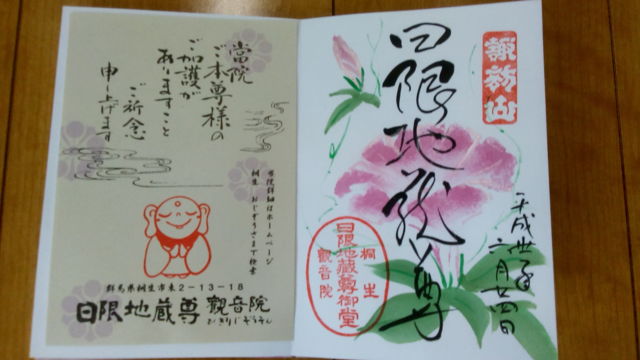 諏訪山
日限地蔵尊
平成廿年
六月廿四日
桐生
日限地蔵尊御堂
観音院
當院
ご本尊様の
ご加護が
ありますこと
ご祈念
申し上げます
当院詳細はホームページ
桐生 おじぞうさまで検索
群馬県桐生市東2-13-18
日限地蔵尊 観音院
ひぎりじぞうそん